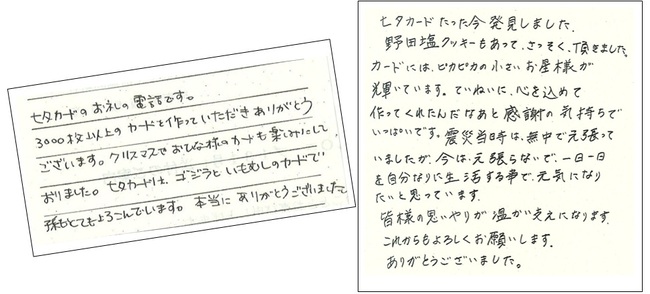 七夕カードのお礼の電話です。
3000枚以上のカードを作っていただきありがとう
ございます。クリスマスやおひな様のカードも楽しみにして
おりました。七夕カードは、ゴジラといもむしのカードで
孫もとてもよろこんでいます。本当にありがとうございました
七夕カードたった今発見しました。
野田塩クッキーもあって、さっそく、頂きました。
カードには、ピカピカの小さいお星様が
輝いています。ていねいに、心を込めて
作ってくれたんだなあと感謝の気持ちで
いっぱいです。震災当時は、無中で元張って
いましたが、今は、元張らないで、一日一日
を自分なりに生活する事で、元気になり
たいと思っています。
皆様の思いやりが温かい支えになります。
これからもよろしくお願いします。
ありがとうございました。